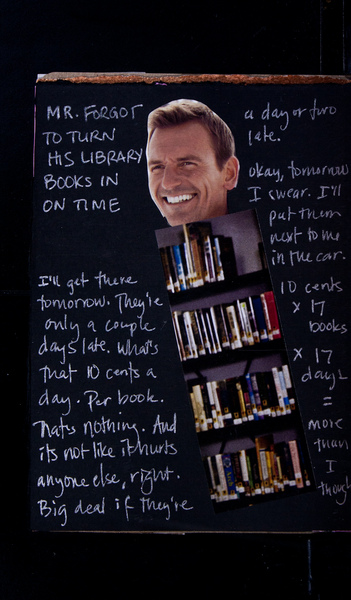 MR. FORGOT
TO TURN
HIS LIBRARY
BOOKS IN
ON TIME
I'll get there
tomorrow. They're
only a couple
days late. What's
that 10 cents a
day. Per book.
Thats nothing. And
its not like it hurts
anyone else, right.
Big deal if they're
a day or two
late.
okay, tomorrow
I swear. I'll
put them
next to me
in the car.
10 cents
x 17
books
x 17
days
=
more
than
I
though